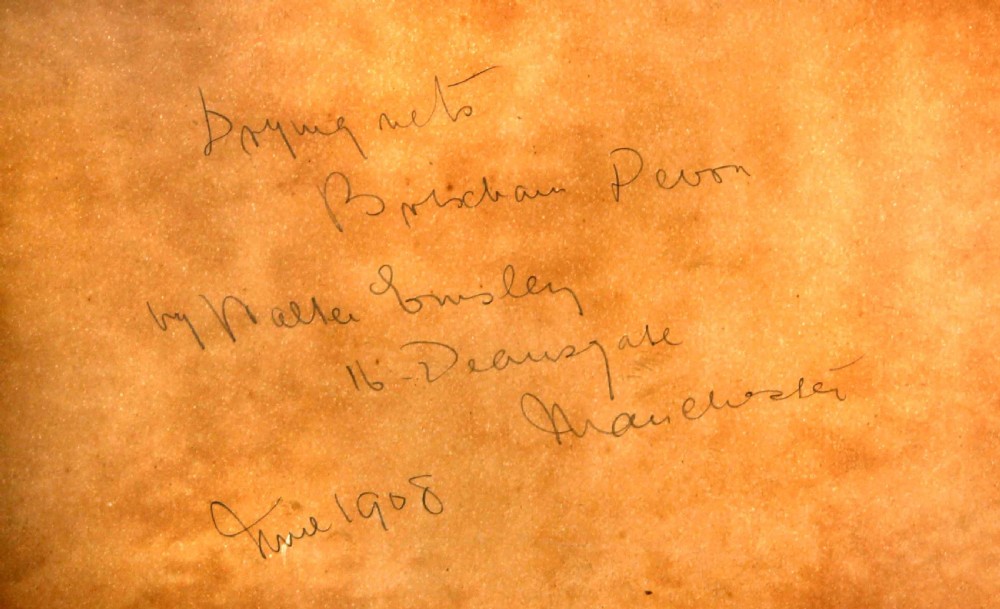 Drying nets
Brixham Devon
by Walter Emsley
16 - Deansgate
Manchester
June 1908